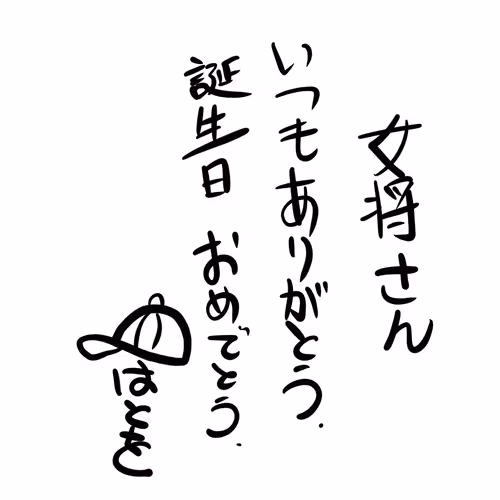 女将さん
いつもありがとう.
誕生日 おめでとう.
はともと